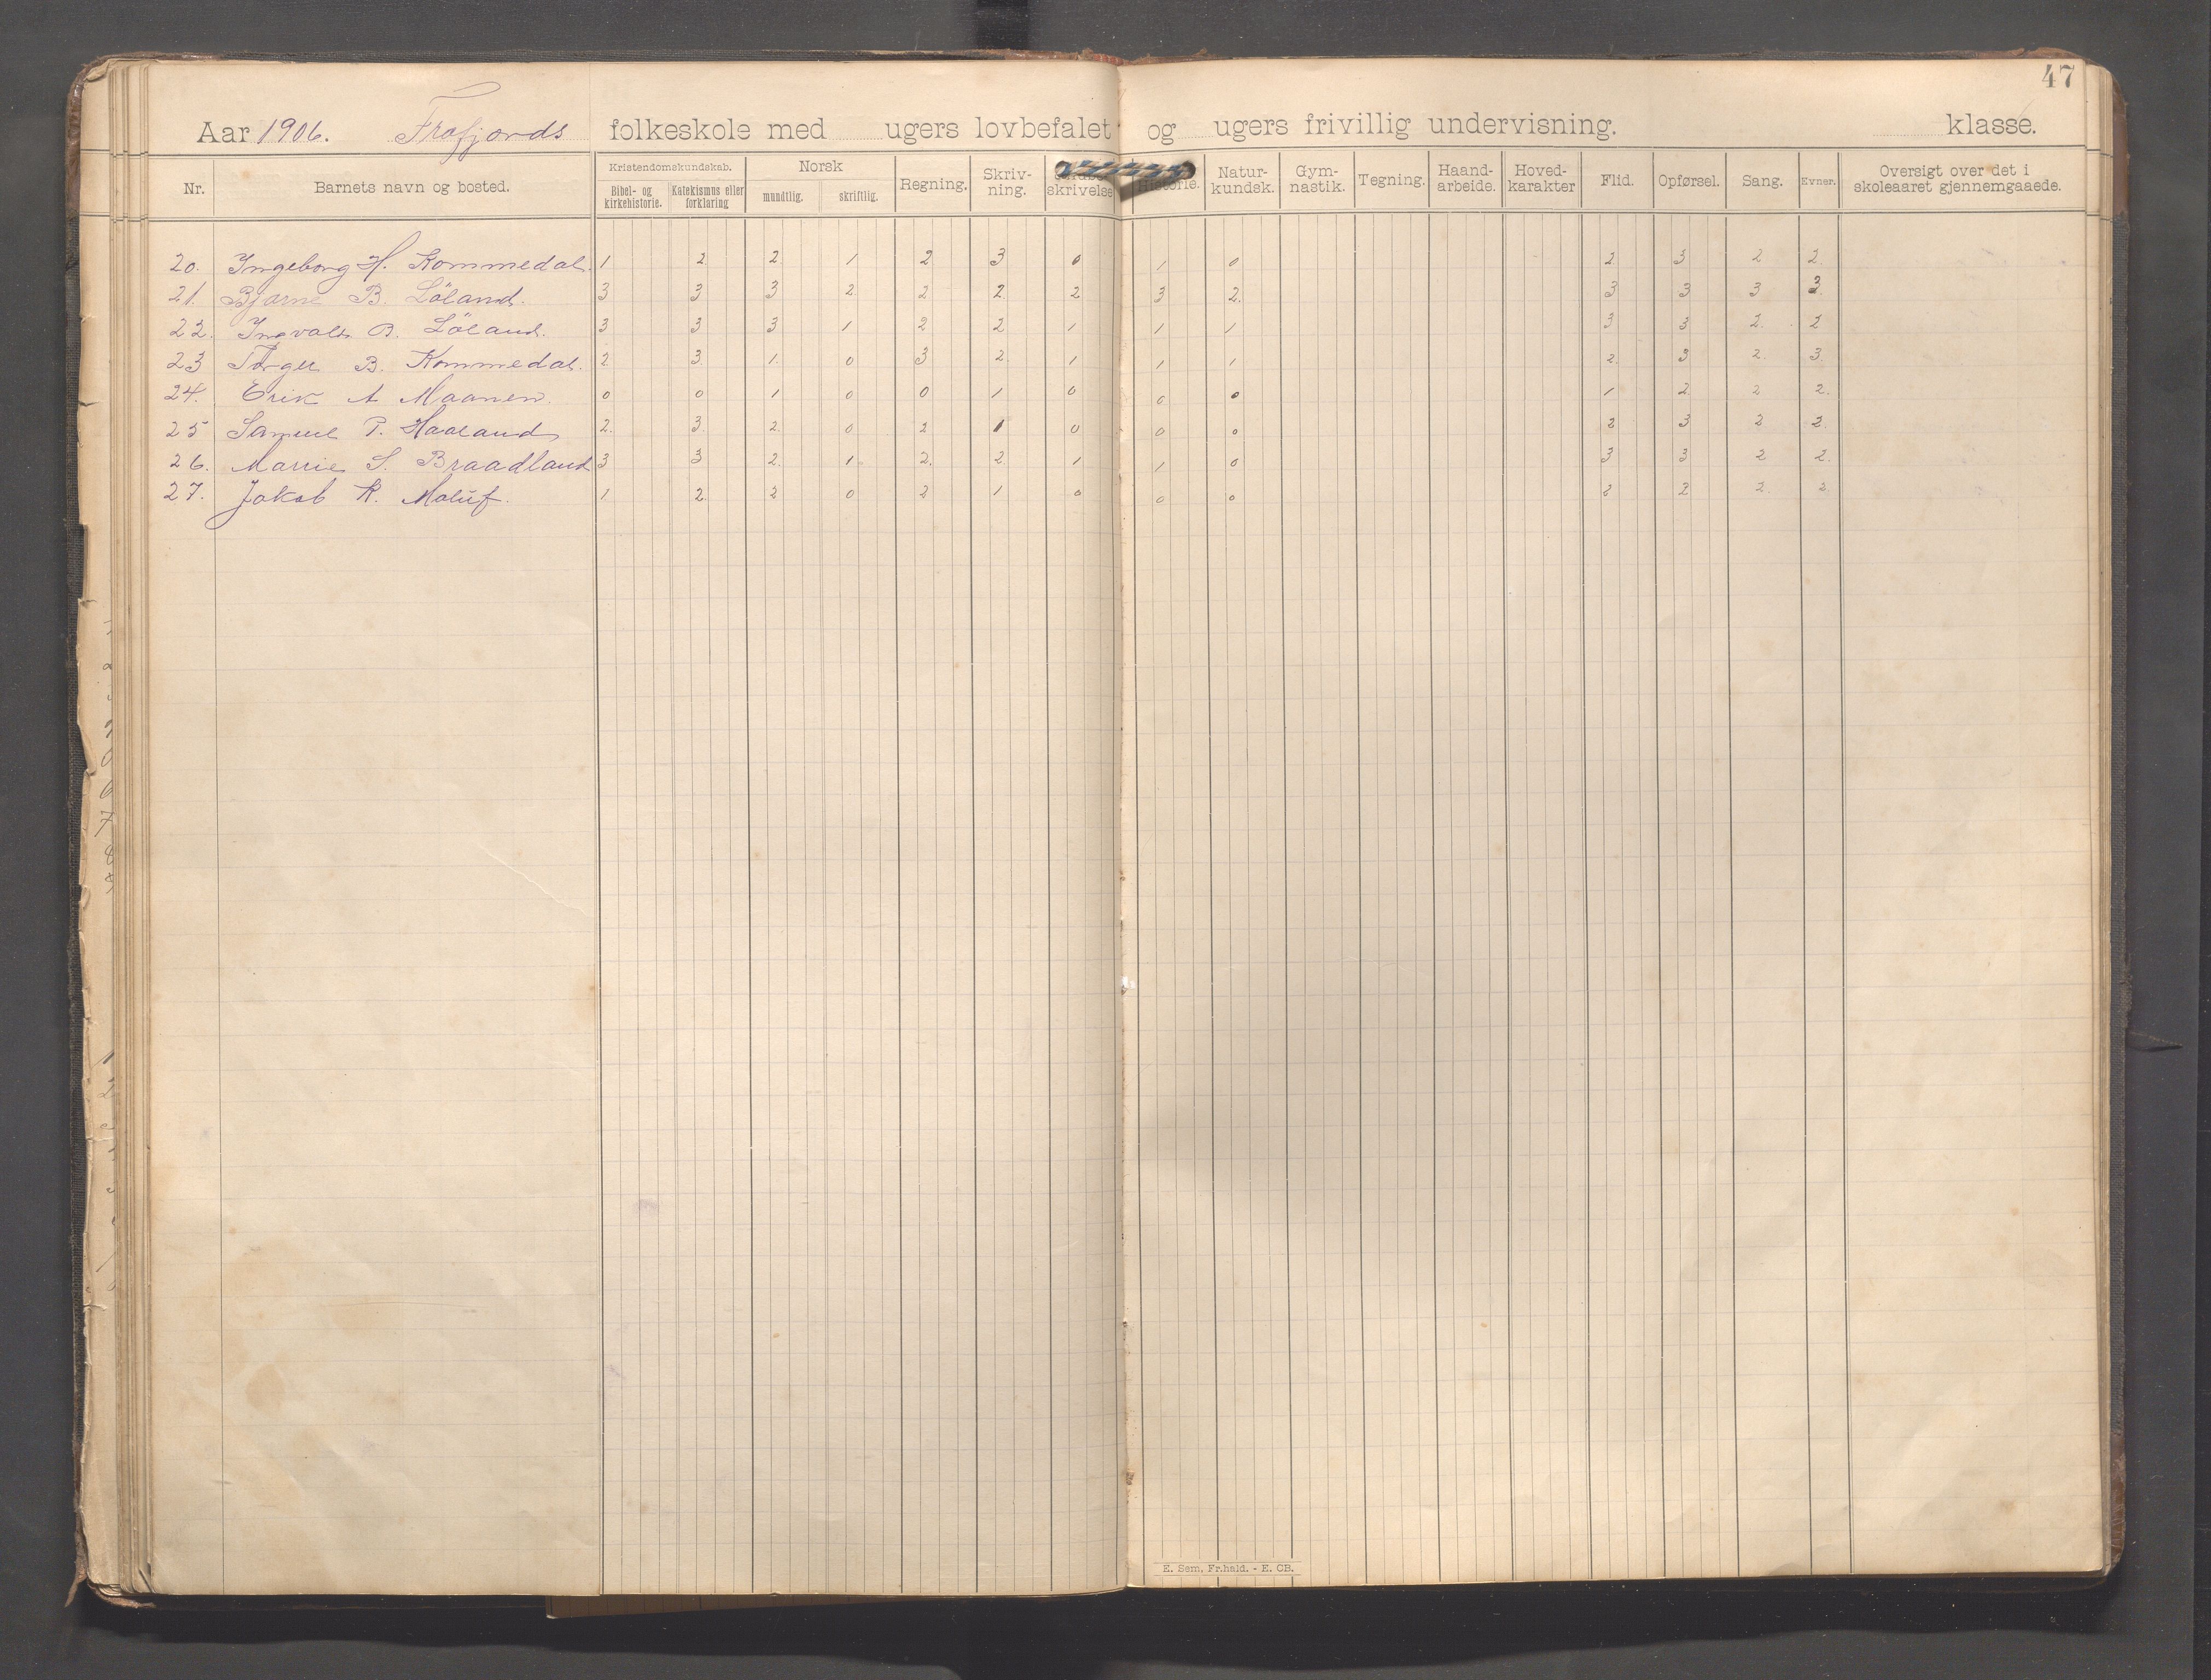 47
Aar 1906. Frafjords folkeskole med ugers lovbefalet og ugers frivillig undervisning. klasse.
Nr. Barnets navn og bosted. Kristendomskundskab. Bibel- og kirkehistorie. Katekismus eller forklaring Norsk mundtlig. skriftlig. Regning. Skriv-ning. skrivelse Historie. Natur-kundsk. Gym-nastik. Tegning. Haand-arbeide. Hoved-karakter Flid. Opførsel. Sang. Evner. Oversigt over det i skoleaaret gjennemgaaede.
20. Ingeborg H. Kommedal. 1 2 2 1 2 3 0 1 0 2 3 2 2.
21. Bjarne B. Löland. 3 3 3 2 2 2 2 3 2. 3 3 3 3.
22. Ingvald B. Löland. 3 3 3 1 2 2 1 1 1 3 3 2. 2
23 Torger B. Kommedal. 2. 3. 1. 0 3 2. 1 1 1 2. 3 2. 3.
24. Erik A Maanen. 0 0 1 0 0 1 0 0 0 1 2 2 2.
25 Samuel P. Haaland 2. 3. 2. 0 2 1 0 0 0 2 3 2 2.
26. Marrie S. Braadland 3 3 2. 1. 2. 2. 1 1 0 3 3 2 2.
27. Jakob R. Molüf. 1. 2. 2 0 2 1 0 0 0 2 2 2. 2.
E. Sem, Fr.hald. - E. CB.